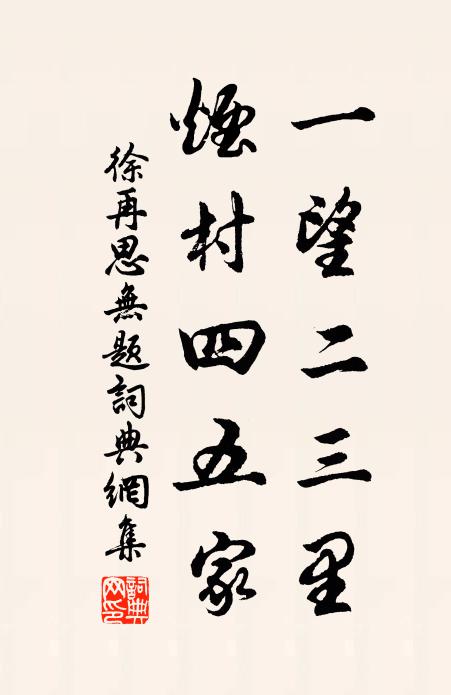 一望二三里
煙村四五家
徐再思無題詞典網集
詞典网印